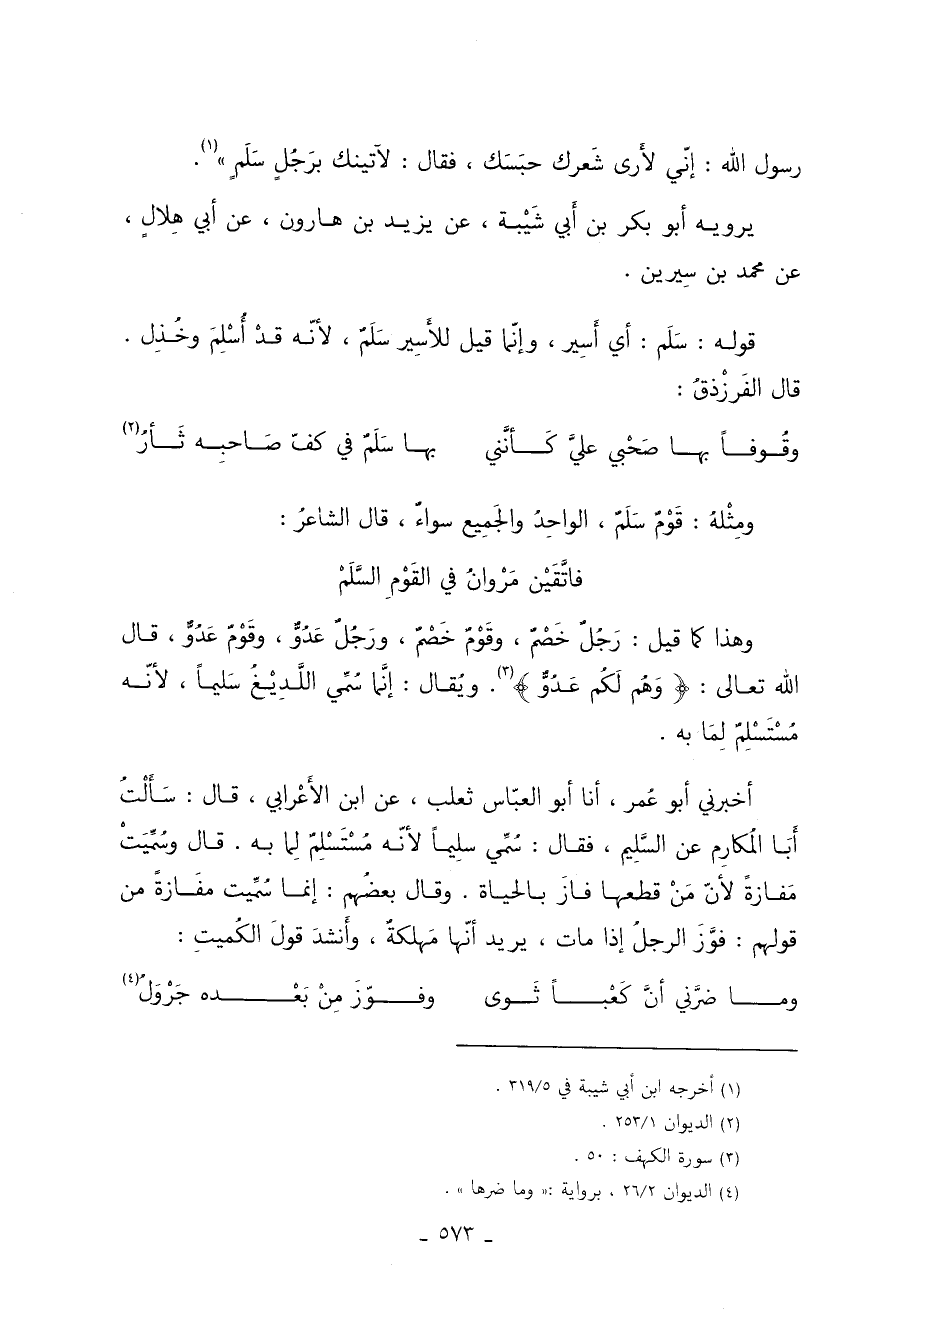 رسول الله : إنّي لأَرى شَعرك حبَسَك ، فقال : لآتينك برَجُلٍ سَلَمٍ »(١).
يرويـه أبو بكر بن أَبي شَيْبَة ، عن يزيـد بن هـارون ، عن أبي هِلالٍ ،
عن محمد بن سِيرين .
قولـه : سَلَم : أي أَسير ، وإنّما قيل للأَسِير سَلَمٌ ، لأنّـه قـدْ أُسْلِمَ وخُـذِل .
قال الفَرزْدَقُ :
وقُـوفـاً بهـا صَحْبي عليَّ كَـأنَّني بهـا سَلَمٌ في كفّ صَـاحبِـه ثَـأرُ(٢)
ومِثْلهُ : قَوْمٌ سَلَمٌ ، الواحِدُ والجَميع سواءٌ ، قال الشاعرُ :
فاتَّقَيْن مَرْوانُ في القَوْمِ السَّلَمْ
وهذا كما قيل : رَجُلٌ خَصْمٌ ، وقَوْمٌ خَصْمٌ ، ورَجُلٌ عَدُوٌّ ، وقَوْمٌ عَدُوٌّ ، قـال
الله تعـالى : ﴿ وَهُم لَكُم عَـدُوٌّ ﴾(٣). ويُقـال : إنَّما سُمِّي اللَّـديْـغُ سَليـماً ، لأنّـه
مُسْتَسْلِمٌ لِمَا به .
أخبرني أبو عُمر ، أنا أبو العبّاس ثعلب ، عن ابن الأَعْرابي ، قـال : سَـأَلْتُ
أَبَـا المَكارِم عن السَّليم ، فقـال : سُمِّي سليـماً لأنّـه مُسْتَسْلِمٌ لِما بـه . قـال وسُمِّيَتْ
مَفازَةً لأنّ مَنْ قطعهـا فـازَ بـالحيَاة . وقـال بعضُهم : إنمـا سُمِّيت مفَـازةً من
قولهم : فوَّزَ الرجلُ إذا مات ، يريد أنّها مَهلكةٌ ، وأَنشدَ قولَ الكُميتِ :
ومـــا ضرَّني أنَّ كَعْبـــاً ثَـوى وفـــوّزَ مِنْ بَعْـــده جَرْوَلُ(٤)
(١) أخرجه ابن أبي شيبة في ٣١٩/٥ .
(٢) الديوان ٢٥٣/١ .
(٣) سورة الكهف : ٥٠ .
(٤) الديوان ٢٦/٢ ، برواية :« وما ضرها » .
ـ ٥٧٣ ـ